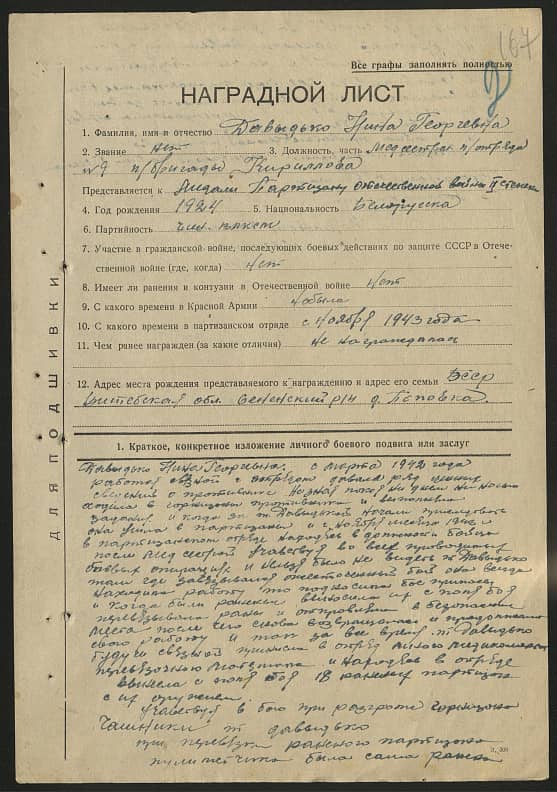 167
2
Все графы заполнять полностью
НАГРАДНОЙ ЛИСТ
1. Фамилия, имя и отчество Давыдько Нина Георгевна
2. Звание нет 3. Должность, часть медсестра п/отряда
№9 п/бригады Кириллова
Представляется к медали Партизану отечественной войны II степени
4. Год рождения 1924 5. Национальность Белоруска
6. Партийность
7. Участие в гражданской войне, последующих боевых действиях по защите СССР в Отече-
ственной войне (где, когда) Нет
8. Имеет ли ранения и контузии в Отечественной войне Нет
9. С какого времени в Красной Армии Не была
10. С какого времени в партизанском отряде с Ноября 1943 года
11. Чем ранее награжден (за какие отличия) Не награждалась
12. Адрес места рождения представляемого к награждению и адрес его семьи БССР
Витебская обл. Сенненский р/н д. Поповка.
ДЛЯ ПОДШИВКИ
1. Краткое, конкретное изложение личного боевого подвига или заслуг
Давыдько Нина Георгевна. с марта 1942 года
работая связной с отрядом давала ряд ценных
сведений о противнике
ходила в гарнизоны противника и выполняла
задания и когда за т. Давыдькой начали
она ушла в партизаны и с ноября месяца
в партизанском отряде находясь в должности бойца
после медсестрой участвуя во всех проводимых
боевых операциях и нельзя было не видеть т. Давыдько
там где завязывался ожесточенный бой она всегда
находила работу то подносила бое припасы
и когда были раненые выносила их с поля боя
перевязывала раны и отправляла в безопасные
места после чего снова возвращалась и продолжала
свою работу и так за все время т. Давыдько
будучи связной принесла в отряд много медикаментов
перевязочного материала и находясь в отряде
вынесла с поля боя 18 раненых партизан
с их оружием
Участвуя в бою при разгроме гарнизона
Чашники т. Давыдько
при перевязке раненого партизана
пулеметчика была сама ранена